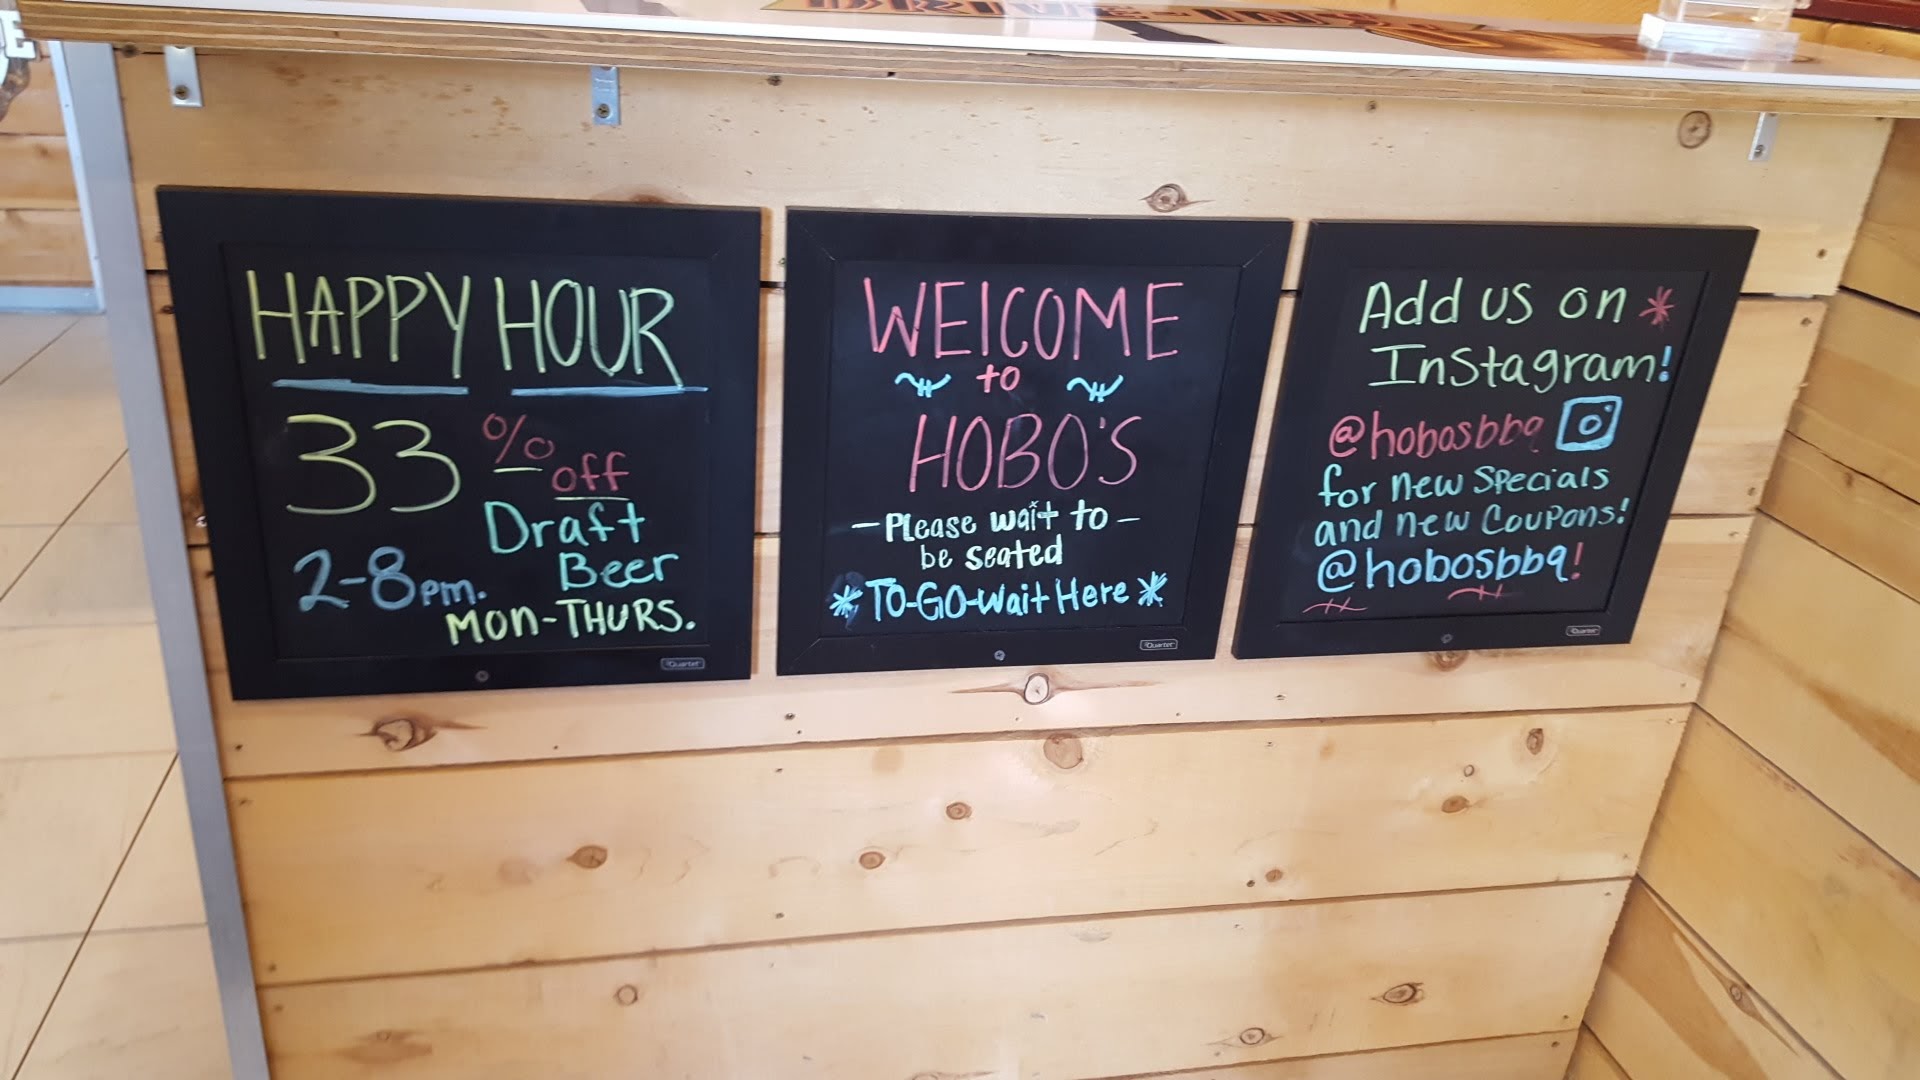 DRIVE-INS
HAPPY HOUR
33% off
Draft
Beer
2-8pm.
MON-THURS.
Quartet
WElCOME
to
HOBO'S
-Please wait to-
be seated
*TO-GO-Wait Here*
Quartet
Add us on *
Instagram!
@hobosbbq
for new Specials
and new Coupons!
@hobosbbq!
Quartet